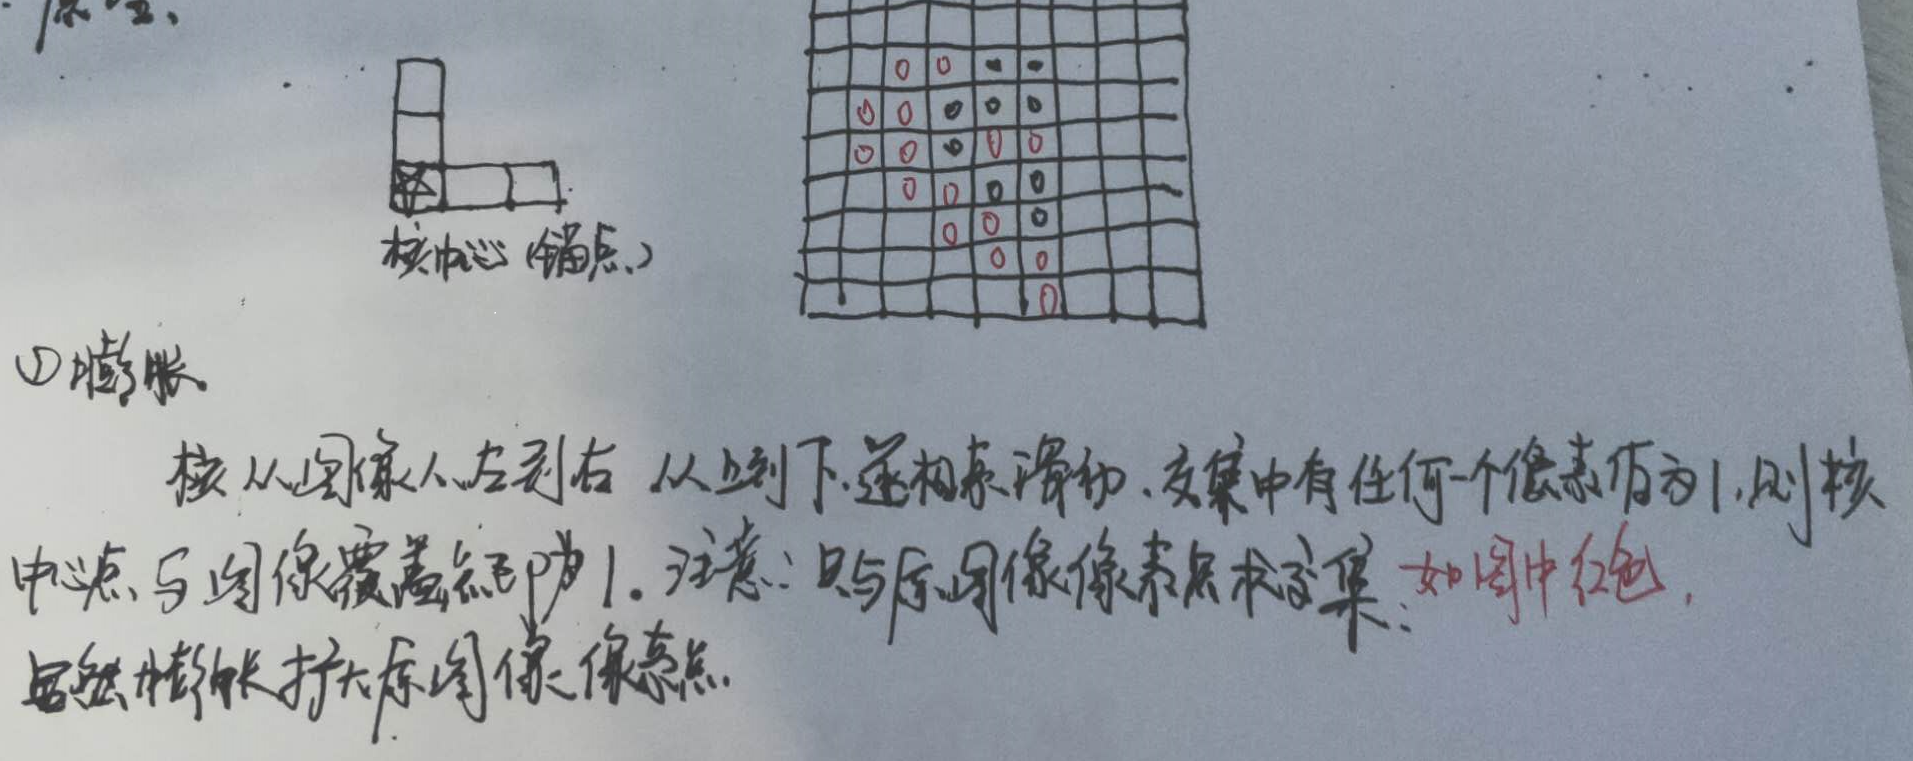 原图、
核中心(锚点)
①膨胀.
核从图像从左到右 从上到下.逐相素滑动.交集中有任何一个像素值为1,则核
中心点与图像覆盖点即为1。注意:只与原图像像素点求交集.如图中红色.
显然膨胀扩大原图像像素点.